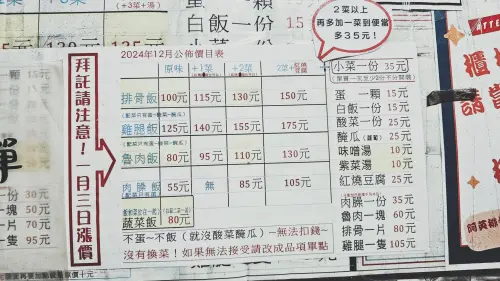 2菜以上
再多加一菜到便當
多35元!
白飯一份 15
拜託請注意!一月三日漲價
2024年12月公佈價目表
原味 +1菜 +2菜 2菜+紅燒豆腐
排骨飯 100元 115元 130元 150元
雞腿飯 125元 140元 155元 175元
魯肉飯 80元 95元 110元 130元
肉臊飯 55元 無 85元 105元
蔬菜飯 80元
不蛋~不飯(就沒酸菜醃瓜)~無法扣錢~
沒有換菜!如果無法接受請改成品項單點
小菜一份 35元
蛋 一顆 15元
白飯一份 15元
酸菜一份 25元
醃瓜(蘿蔔) 25元
味噌湯 10元
紫菜湯 10元
紅燒豆腐 25元
肉臊一份 35元
魯肉一份 60元
排骨一片 80元
雞腿一隻 105元
份 30元
一塊 50元
一片 70元
一隻 95元